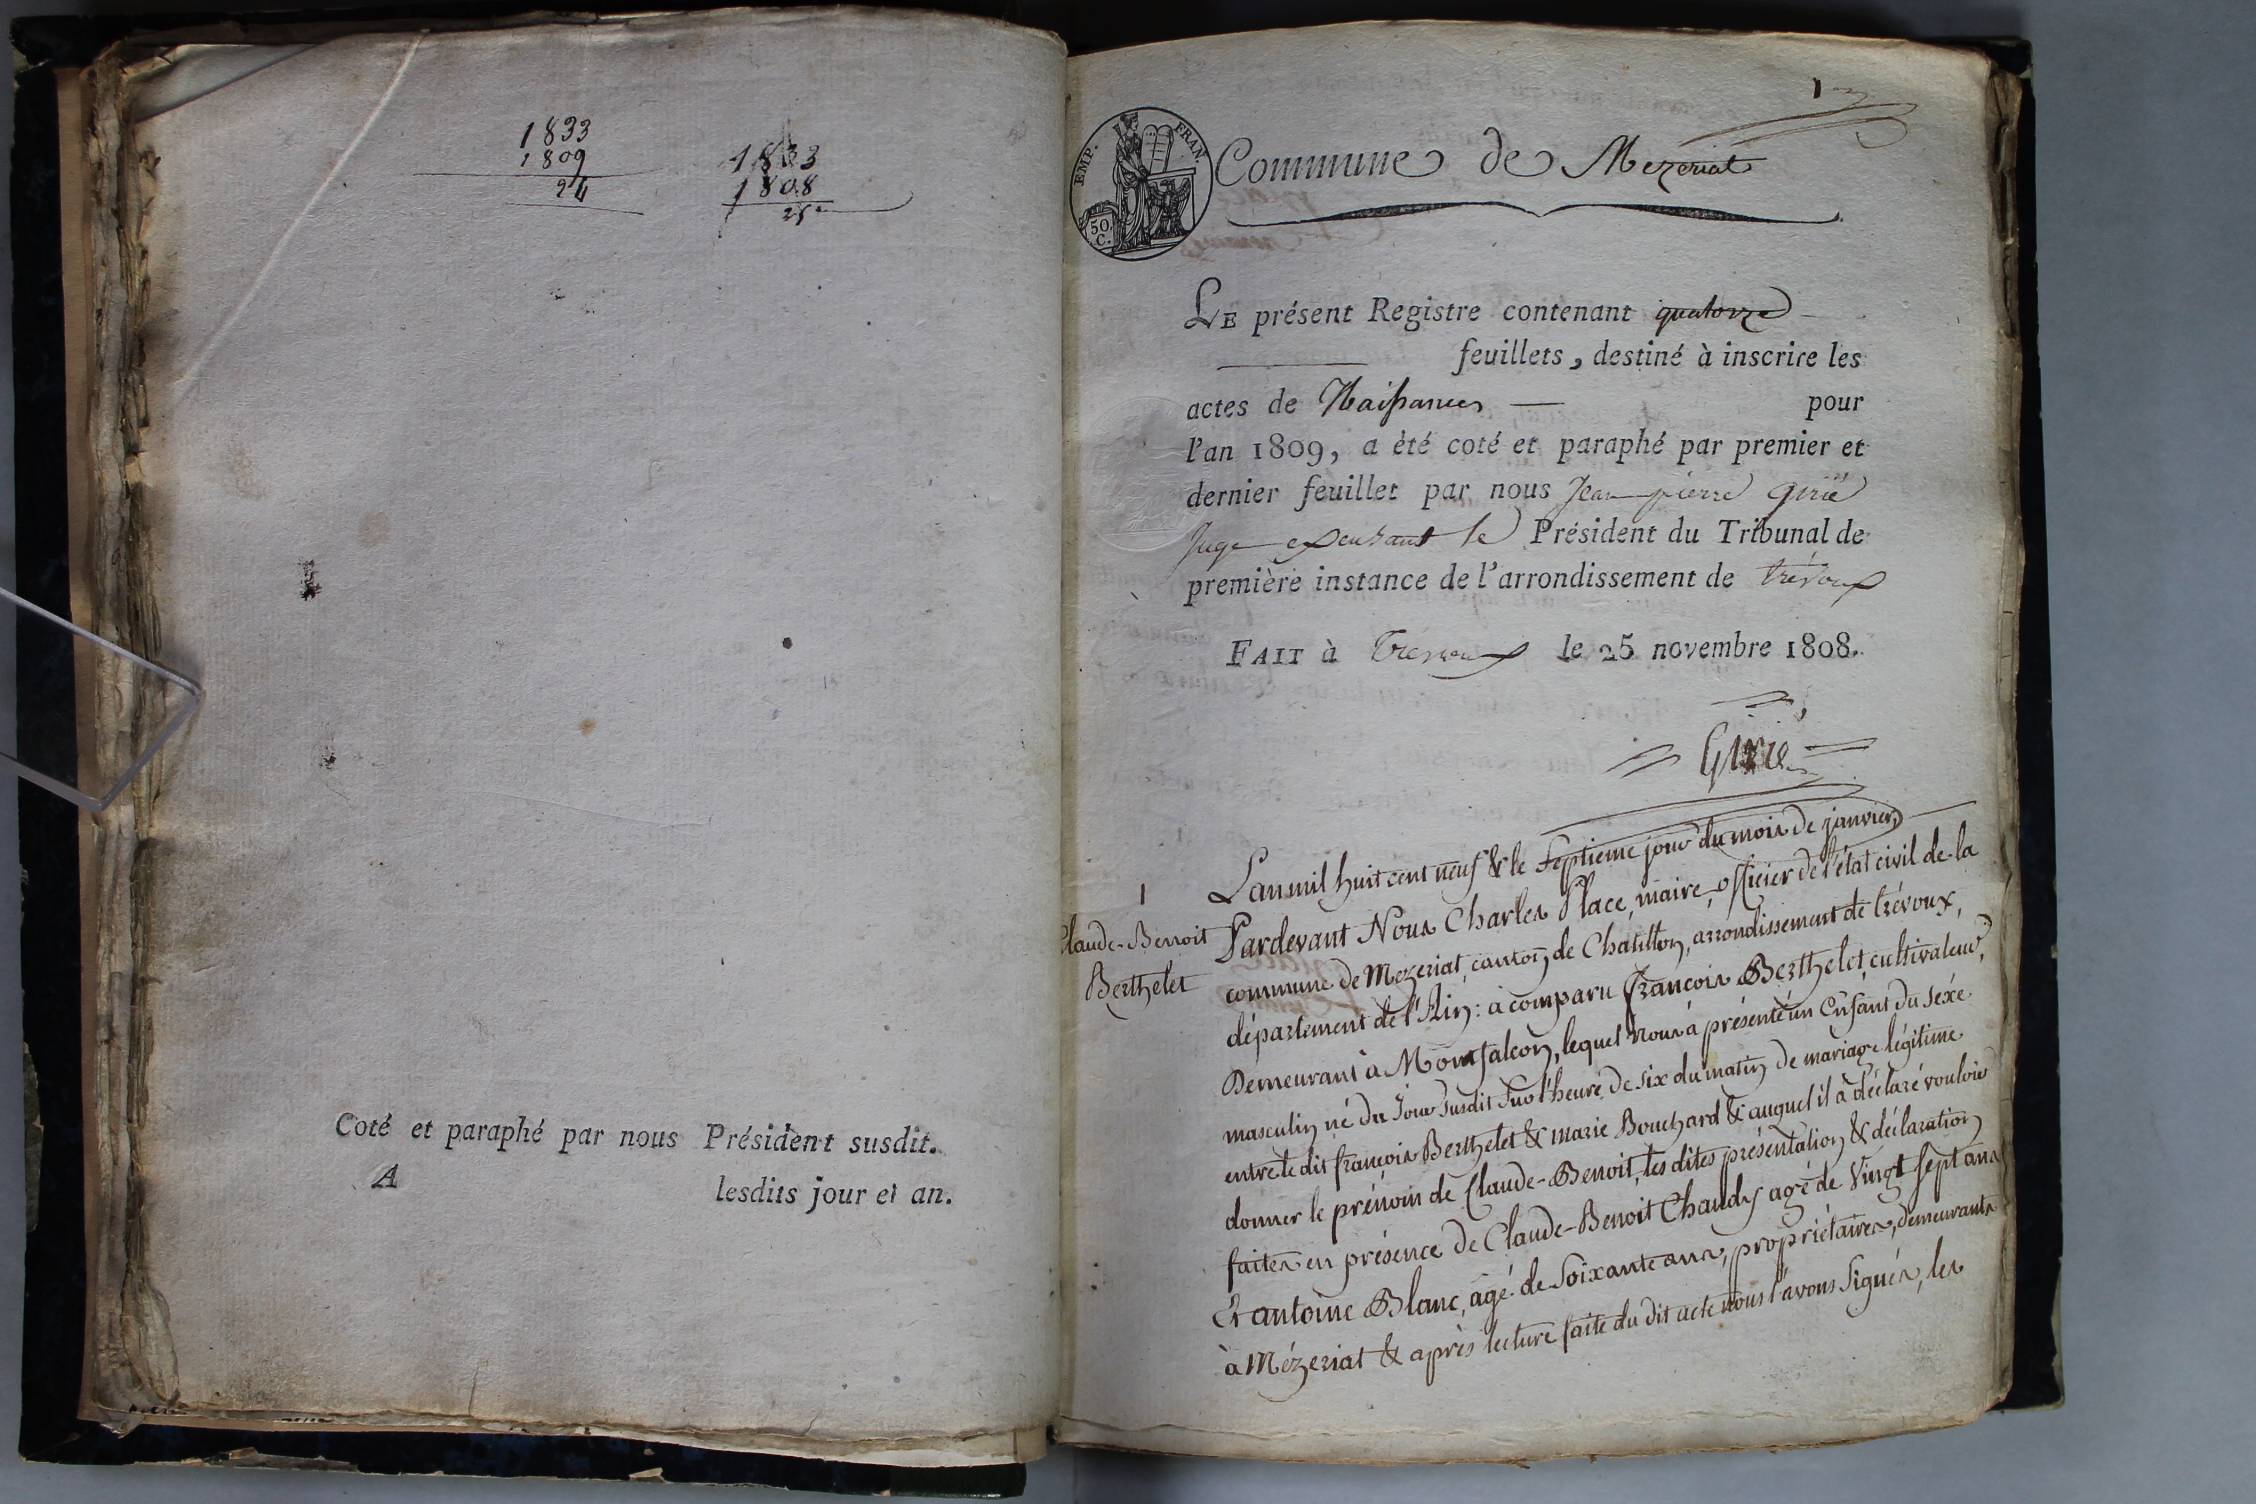 1833
1809
24
1833
1808
25
Coté et paraphé par nous Président susdit.
A lesdits jour et an.
1
EMP. FRAN.
50.
C.
Commune de Mezeriat
LE présent Registre contenant quatorze
feuillets, destiné à inscrire les
actes de Naissances — pour
l'an 1809, a été coté et paraphé par premier et
dernier feuillet par nous Jean pierre Girié
Juge le Président du Tribunal de
première instance de l'arrondissement de trévoux
FAIT à Trévoux le 25 novembre 1808.
Girié
1
Claude-Benoit
Berthelet
L'an mil huit cent neuf & le septieme jour du mois de janvier,
Pardevant Nous Charles Place, maire, officier de l'état civil de la
commune de Mezeriat, canton de Chatillon, arrondissement de trévoux,
département de l'Ain: à comparu françois Berthelet, cultivateur,
Demeurant à Montfalcon, lequel nous à présenté un Enfant du sexe
masculin né du Jour susdit sur l'heure de six du matin de mariage légitime
entre le dit françois Berthelet & marie Bouchard & auquel il à déclaré vouloir
donner le prénom de Claude-Benoit, les dites présentation & déclaration
faites en présence de Claude-Benoit Chandy agé de Vingt sept ans
Et antoine Blanc, agé de soixante ans, propriétaires, demeurants
à Mézeriat & après lecture faite du dit acte nous l'avons Signés, les